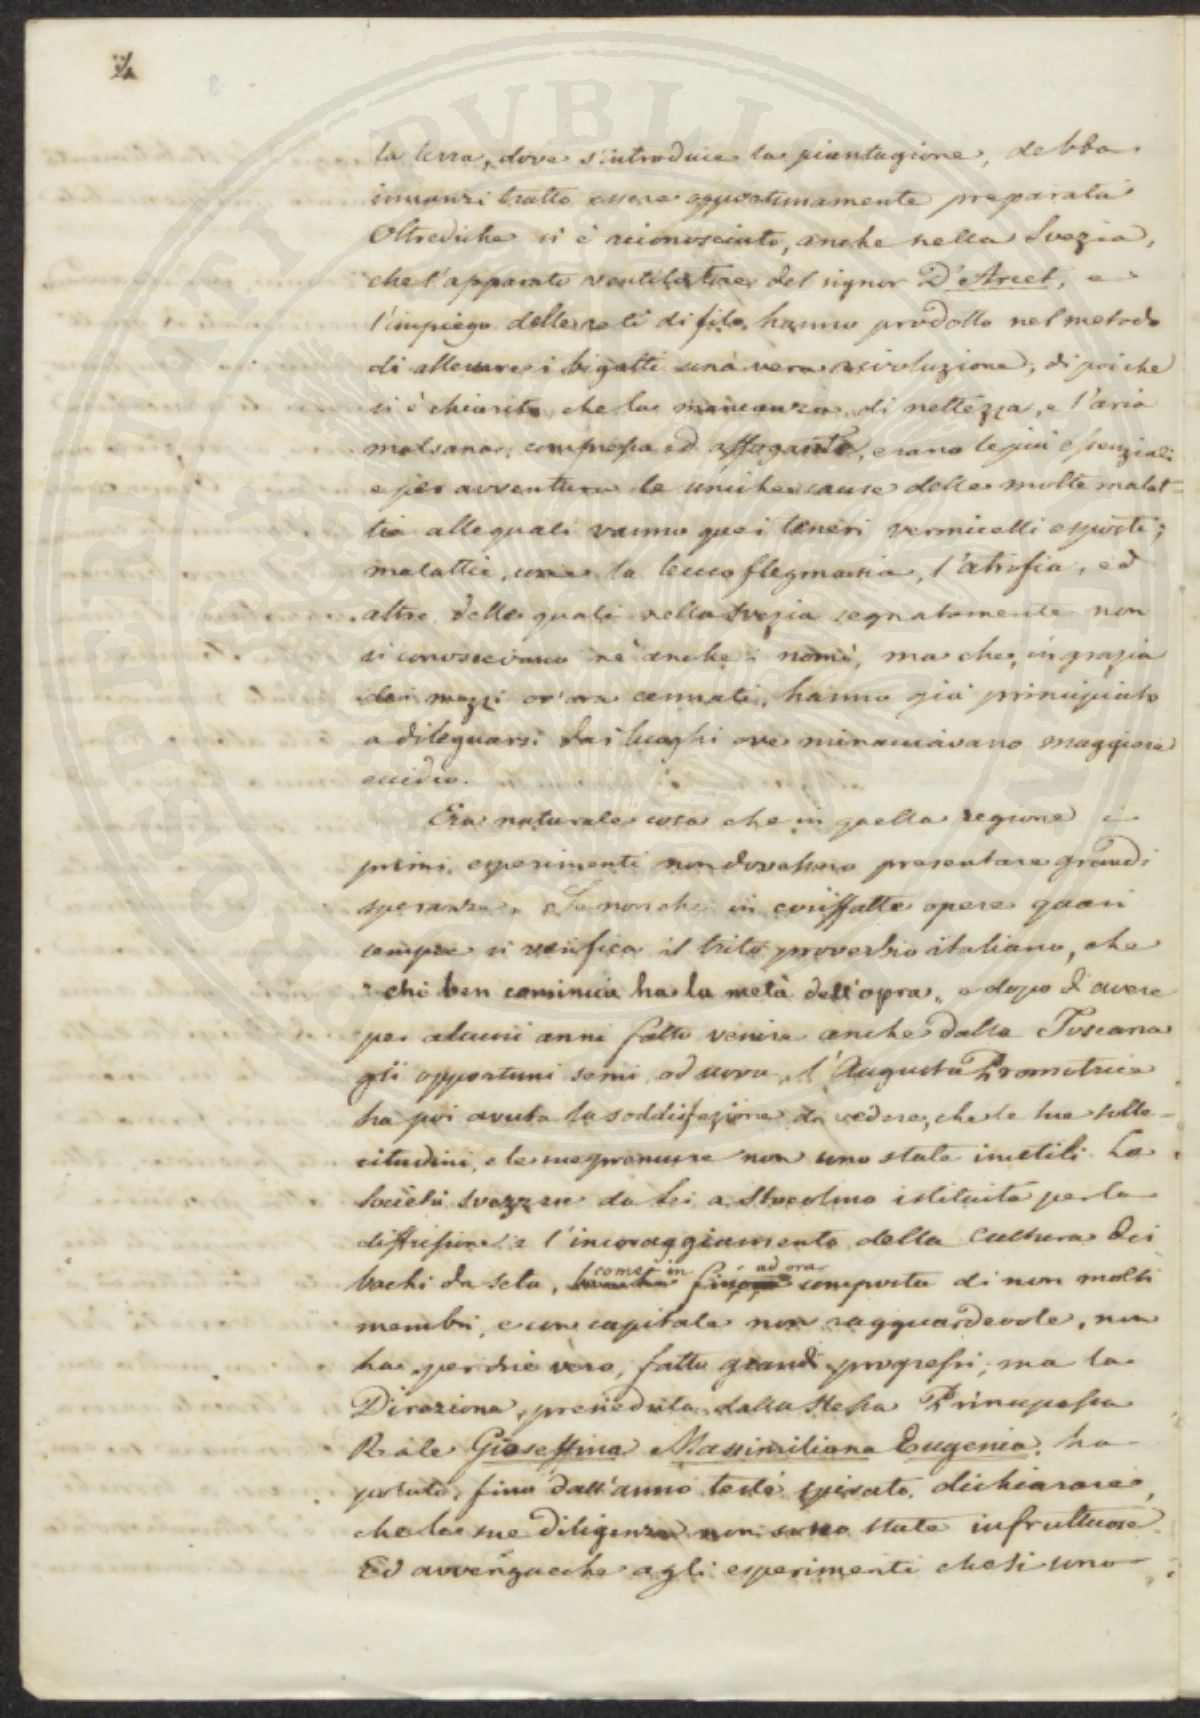 2
la terra, dove s'introduce la piantagione, debba
innanzi tratto essere opportunamente preparata
Oltrediche si è riconosciuto, anche nella Svezia,
che l'apparato ventilatore del signor D'Arcet, e
l'impiego delle reti di filo, hanno prodotto nel metodo
di allevare i bigatti una vera rivoluzione; di poi che
si è chiarito, che la mancanza di nettezza, e l'aria
malsana, compressa ed affogante, erano le più essenziali
e per avventura le uniche cause delle molte malat-
tie alle quali vanno que i teneri vermicelli esposti;
malattie, come la leucoflegmasia, l'atrofia, ed
altre delle quali nella Svezia segnatamente non
si conoscevano nè anche i nomi, ma che, in grazia
dei mezzi or'ora cennati, hanno già principiato
a dileguarsi dai luoghi ove minacciavano maggiore
eccidio.
Era naturale cosa che in quella regione i
primi esperimenti non dovessero presentare grandi
speranze. Se non che in cosiffatte opere quasi
sempre si verifica il trito proverbio italiano, che
"chi ben comincia ha la metà dell'opra„ e dopo d'avere
per alcuni anni fatto venire anche dalla Toscana
gli opportuni semi, ed uova, l'Augusta Promotrice
ha poi avuta la soddisfazione di vedere, che le sue solle-
citudini, e le sue premure non sono state inutili. La
Società svezzese da lei a Stocolmo istituita per la
diffusione e l'incoraggiamento della cultura dei
bachi da seta, come in fin ad ora composta di non molti
membri, e con capitale non ragguardevole, non
ha, per dir vero, fatto grandi progressi; ma la
Direzione, presieduta dalla stessa Principessa
Reale Gioseffina Massimiliana Eugenia, ha
potuto, fino dall'anno testè spirato, dichiarare,
che le sue diligenze non sono state infruttuose.
Ed avvengacche agli esperimenti che si sono